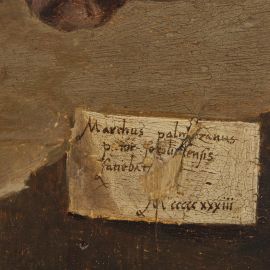 Marchus palmezanus
pictor foroliviensis
faciebat
MCCCCCXXXIII